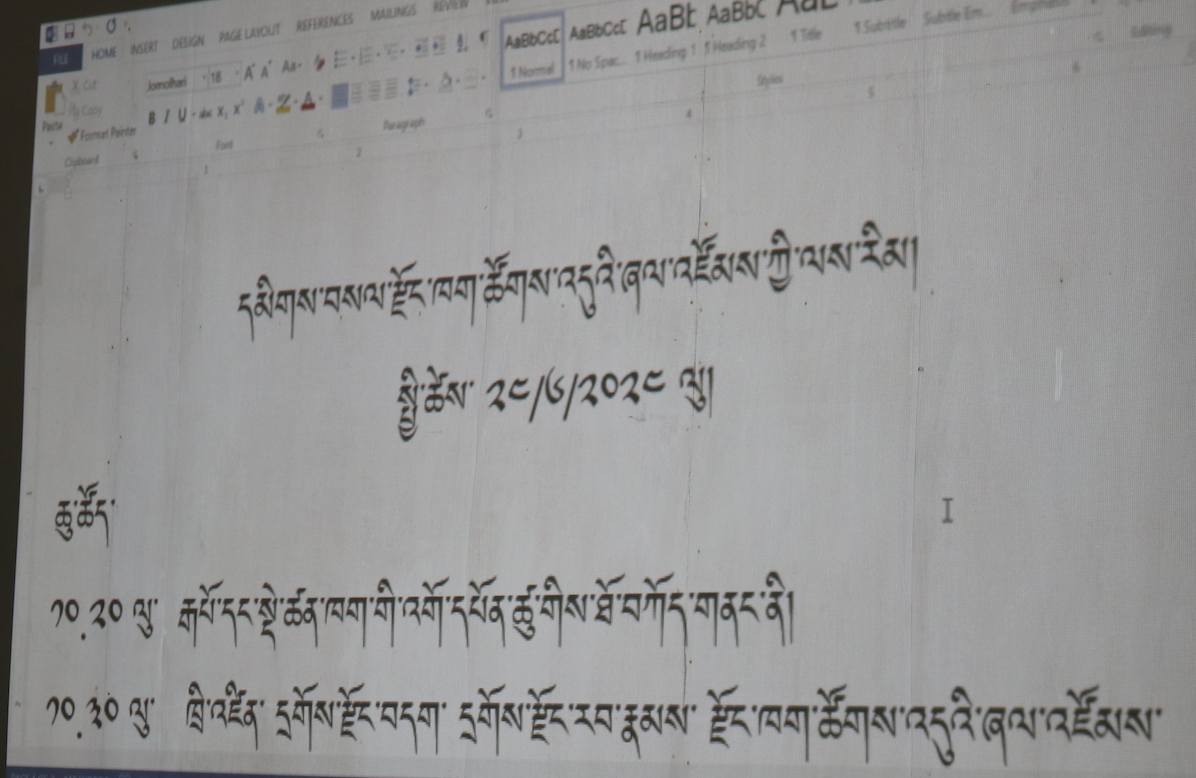 HOME INSERT DESIGN PAGE LAYOUT REFERENCES MAILINGS REVIEW
FILE
Cut
Copy
Paste
Format Painter
Jomolhari 18
AaBbCcD AaBbCcD AaBb AaBbC
¶ Normal ¶ No Spac... ¶ Heading 1 ¶ Heading 2 ¶ Title ¶ Subtitle Subtle Em... Emphasis
Clipboard Font Paragraph Styles Editing
1 2 3 4 5 6
དམིགས་བསལ་རྫོང་ཁག་ཚོགས་འདུའི་ཞལ་འཛོམས་ཀྱི་ལས་རིམ།
སྤྱི་ཚེས་ ༢༨/༦/༢༠༢༨ ལུ།
ཆུ་ཚོད་
༡༠.༢༠ ལུ་ རྒཔོ་དང་སྡེ་ཚན་ཁག་གི་འགོ་དཔོན་ཚུ་གིས་ཐོ་བཀོད་གནང་ནི།
༡༠.༣༠ ལུ་ ཁྲི་འཛིན་ དྲགོས་རྫོང་བདག་ དྲགོས་རྫོང་རབ་རྣམས་ རྫོང་ཁག་ཚོགས་འདུའི་ཞལ་འཛོམས་